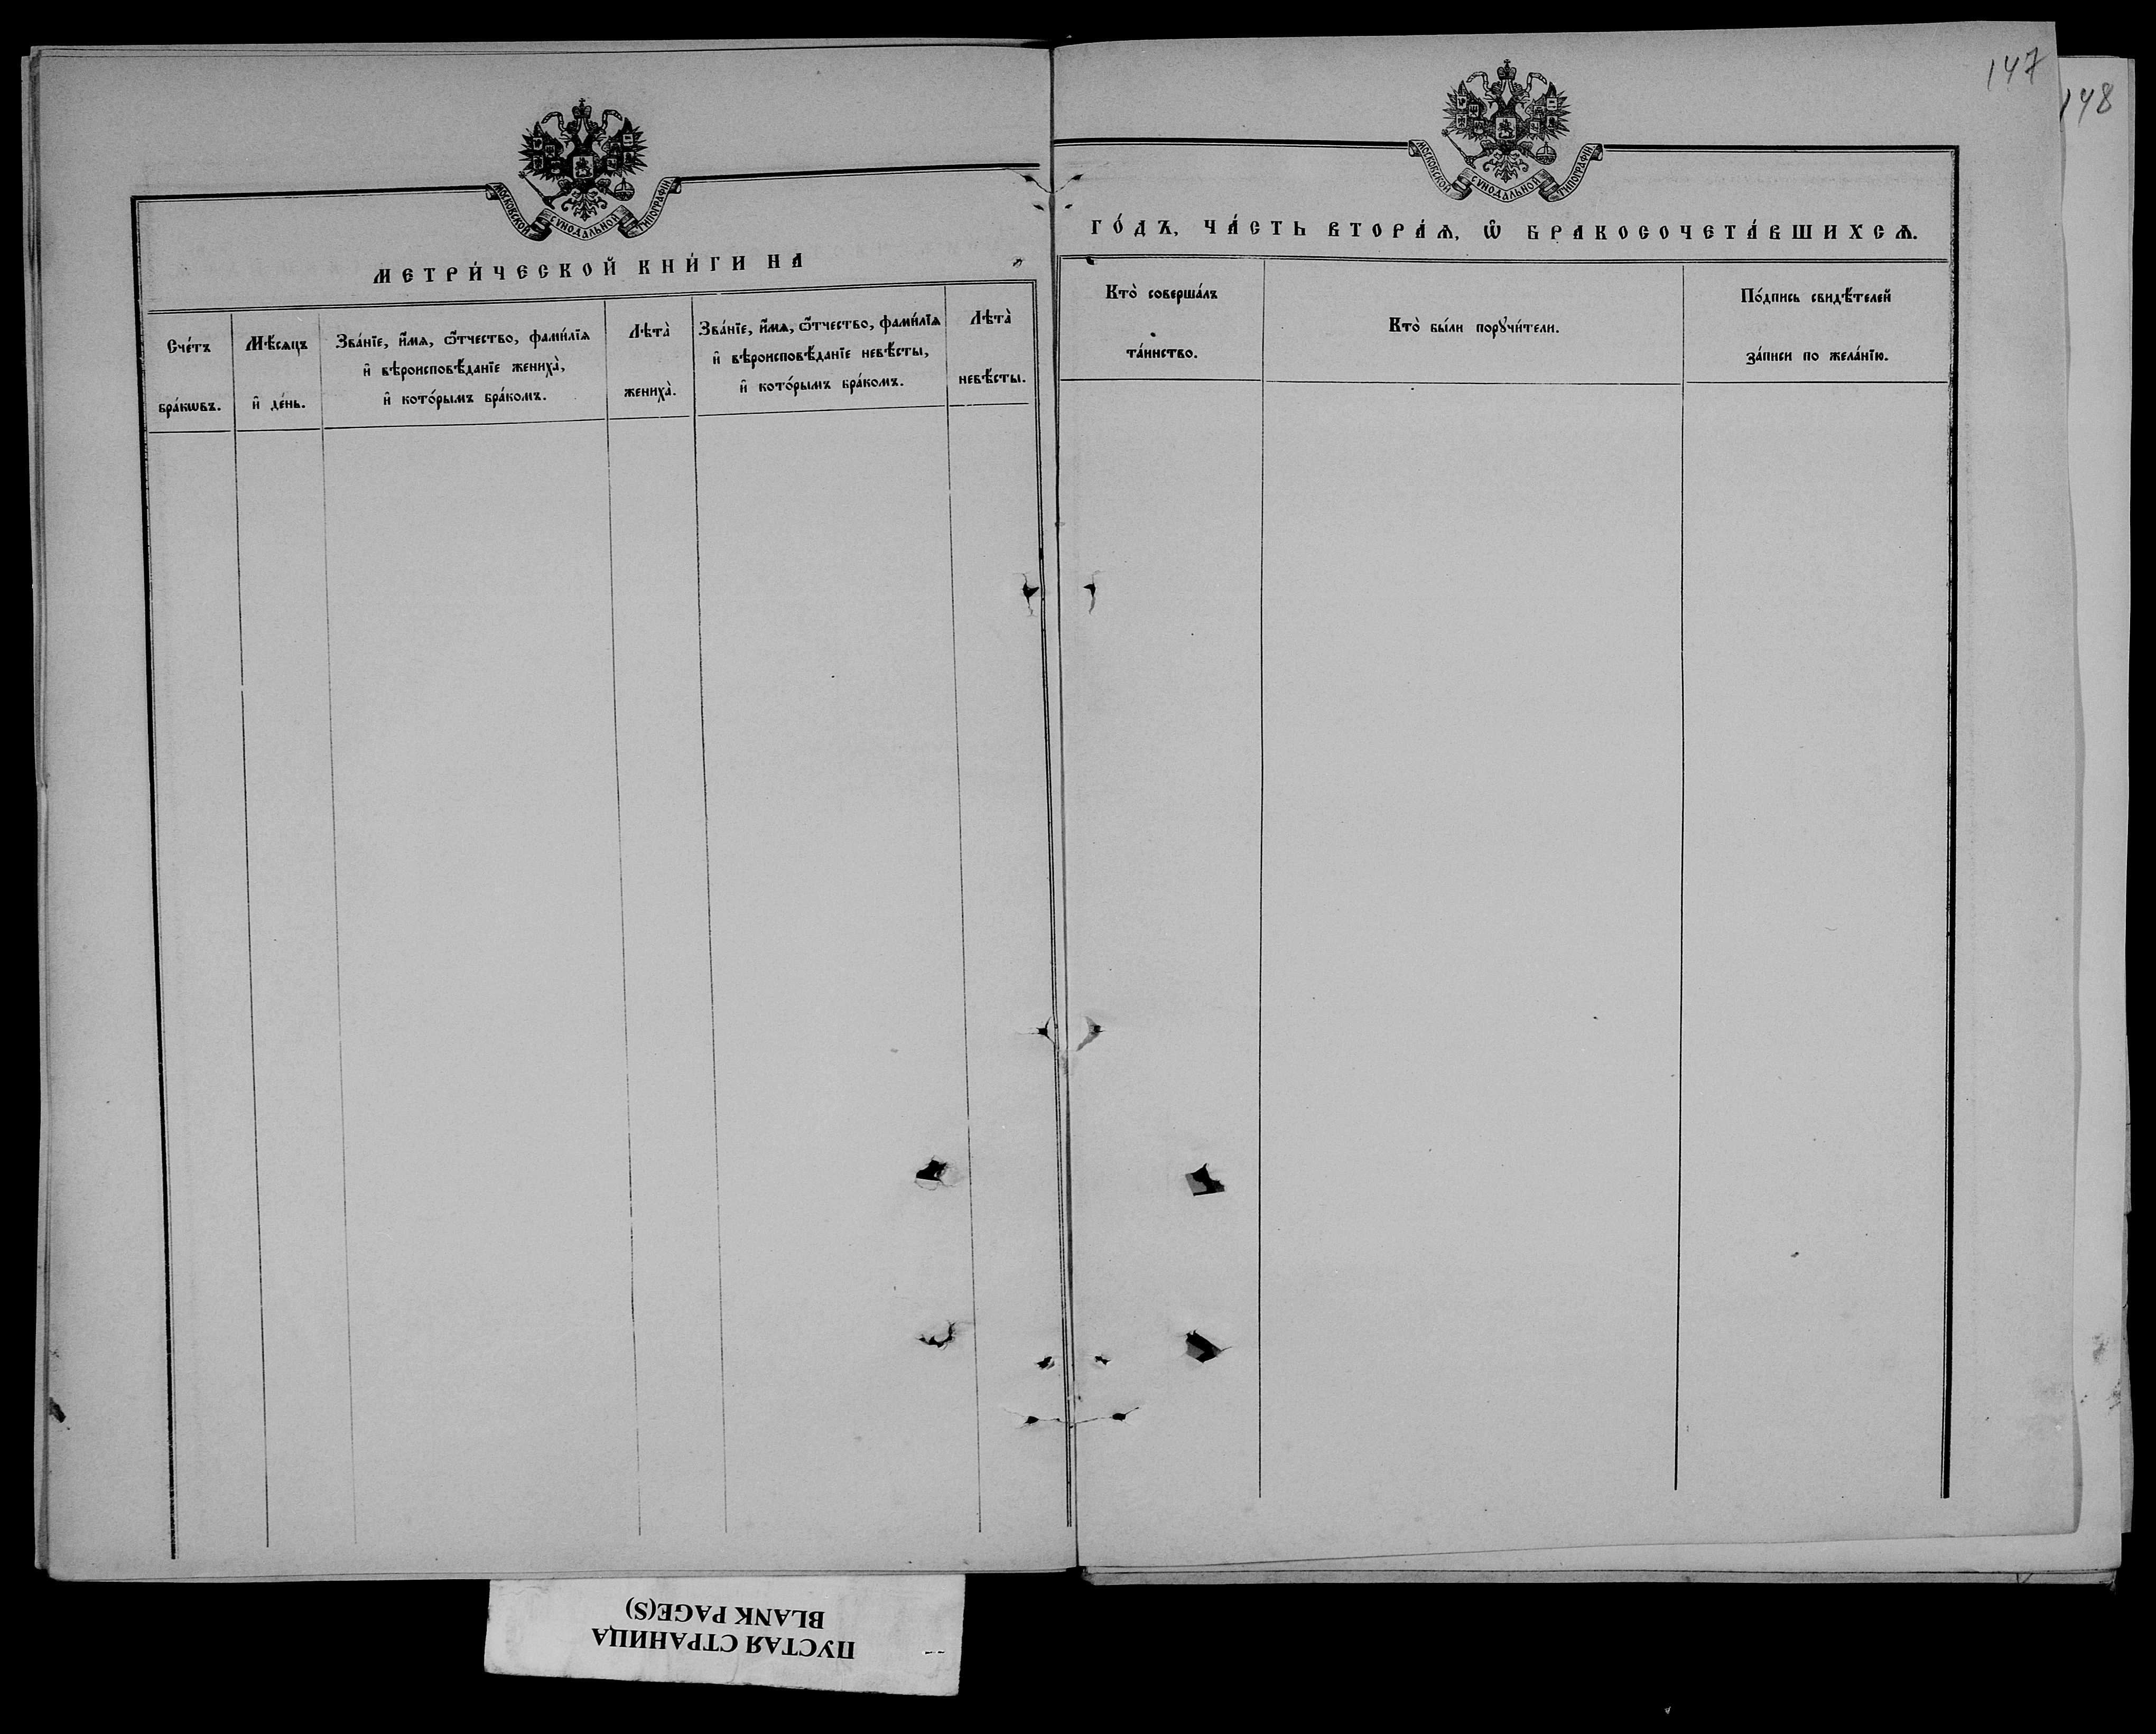 147
148
МОСКОВСКОЙ СѴНОДАЛЬНОЙ ТИПОГРАФІИ
МЕТРИ́ЧЕСКОЙ КНИ́ГИ НА
Сче́тъ
бра́кѡвъ.
Мѣ́сяцъ
и҆ де́нь.
Зва́нїе, и҆́мѧ, ѻ҆́тчество, фами́лїѧ
и҆ вѣроисповѣ́данїе жениха̀,
и҆ кото́рымъ бра́комъ.
Лѣта̀
жениха̀.
Зва́нїе, и҆́мѧ, ѻ҆́тчество, фами́лїѧ
и҆ вѣроисповѣ́данїе невѣ́сты,
и҆ кото́рымъ бра́комъ.
Лѣта̀
невѣ́сты.
МОСКОВСКОЙ СѴНОДАЛЬНОЙ ТИПОГРАФІИ
ГО́ДЪ, ЧА́СТЬ ВТОРА́Ѧ, Ѡ҆ БРАКОСОЧЕТА́ВШИХСѦ.
Кто̀ соверша́лъ
та́инство.
Кто̀ бы́ли порꙋчи́тели.
По́дпись свидѣ́телей
за́писи по жела́нїю.
ПУСТАЯ СТРАНИЦА
BLANK PAGE(S)